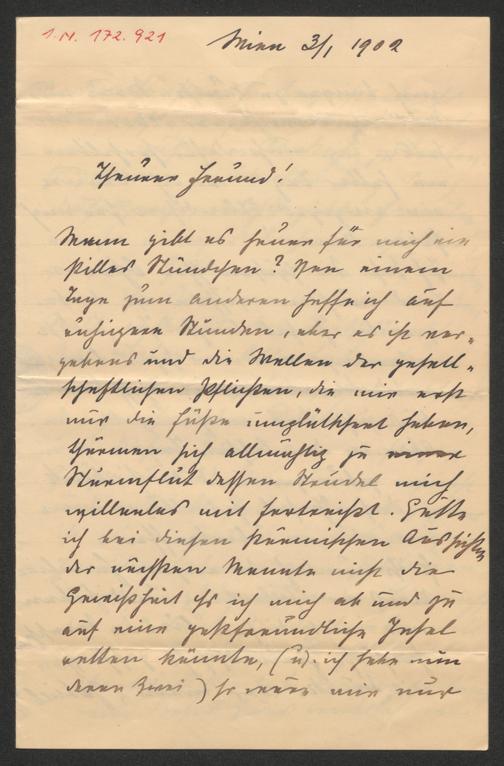 I.N. 172.921
Wien 3/1 1902
Theurer Freund!
Wann gibt es heuer für mich ein
stilles Stündchen? Von einem
Tage zum anderen hoffe ich auf
ruhigere Stunden, aber es ist ver-
gebens und die Wellen der gesell-
schaftlichen Pflichten, die mir erst
nur die Füße umplätschert haben,
thürmen sich allmählig zu einer
Sturmflut dessen Strudel mich
willenlos mit fortreißt. Hätte
ich bei diesen stürmischen Aussichten
der nächsten Monate nicht die
Gewißheit daß ich mich ab und zu
auf eine gastfreundliche Insel
retten könnte, (u. ich habe nun
deren zwei) so wäre mir nur